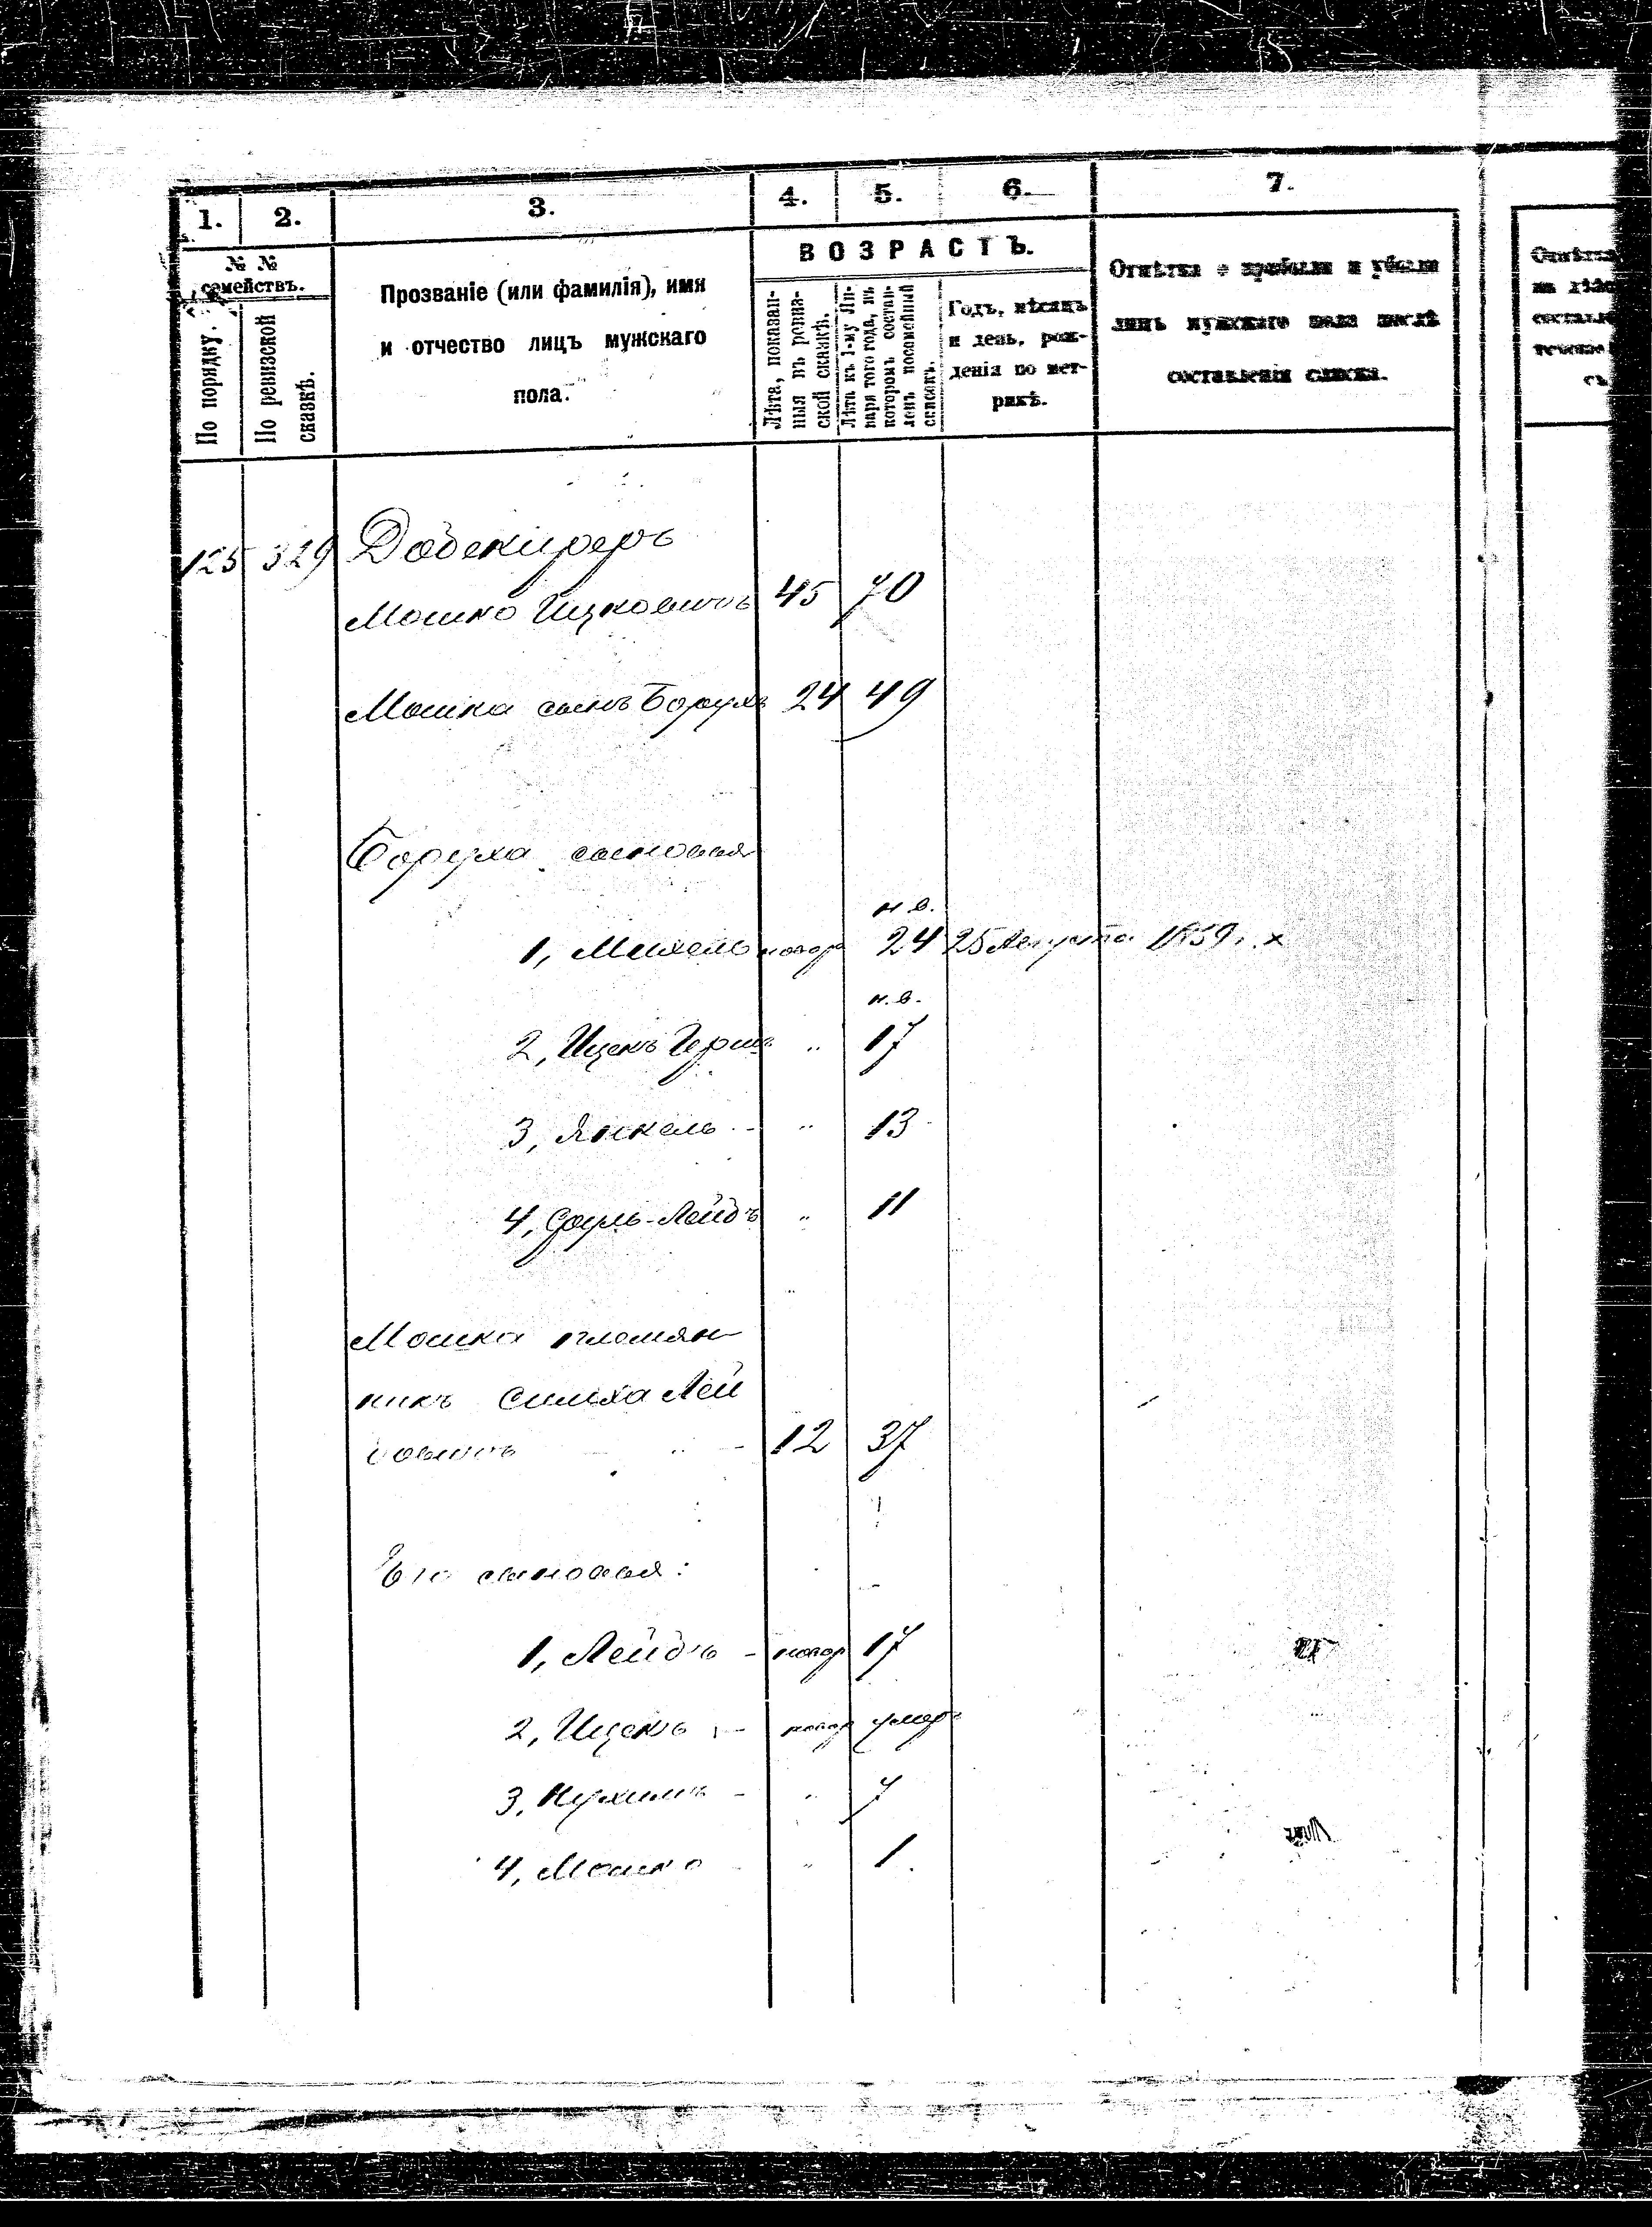 1. 2. 3. 4. 5. 6. 7.
№ №
семействъ.
По порядку.
По ревизской
сказкѣ.
Прозваніе (или фамилія), имя
и отчество лицъ мужскаго
пола.
ВОЗРАСТЪ.
Лѣта, показан-
ныя въ ревиз-
ской сказкѣ.
Лѣта къ 1-му Ян-
варя того года, въ
которомъ состав-
ленъ посемейный
списокъ.
Годъ, мѣсяцъ
и день, рож-
денія по мет-
рикѣ.
Отмѣтка о прибыли и убыли
лицъ мужскаго пола послѣ
составленія списка.
125 329
Мошко Ицковичъ 45 70
Мошка сынъ Борухъ 24 49
Боруха сыновья
н.в.
1, Михель новор 24 25 Августа 1859 г. х
н.в.
2, Ицекъ Гершъ " 17
3, Янкель - " 13
4, Сруль-Лейбъ " 11
Мошка племян-
никъ Симха Лей
бовичъ - 12 37
Его сыновья:
1, Лейбъ - новор 17
2, Ицекъ - новор умеръ
3, Нухимъ - " 7
4, Мошко " 1.